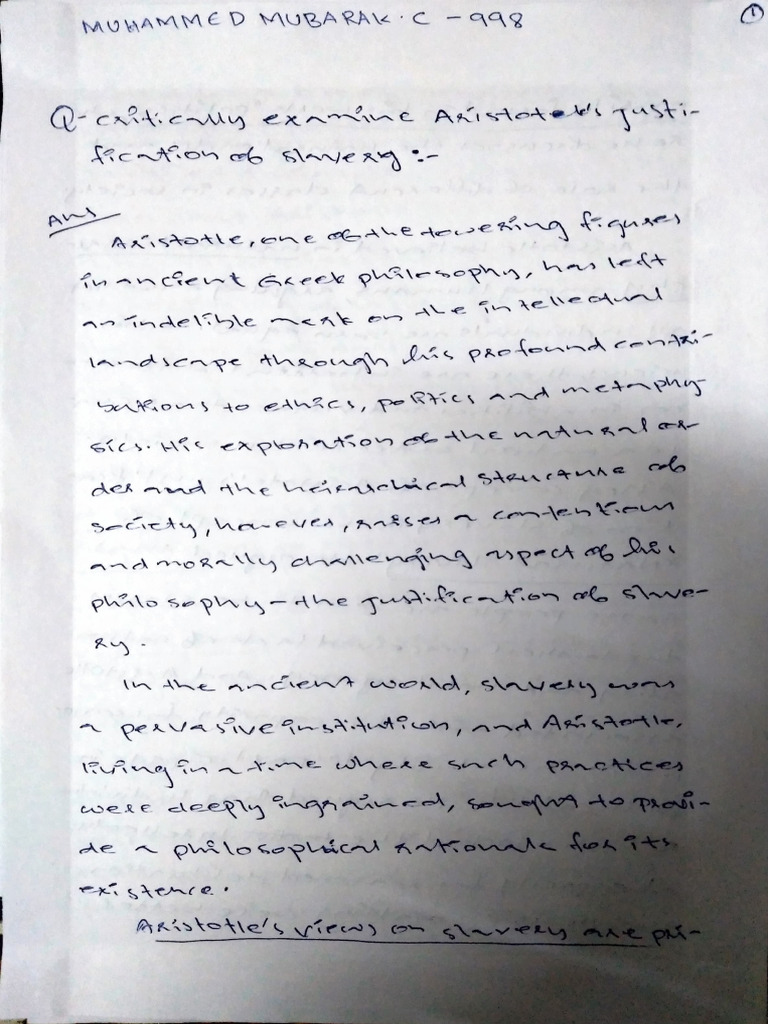 MUHAMMED MUBARAK. C - 998
1
Q- critically examine Aristotle's justi-
fication of slavery :-
Ans
Aristotle, one of the towering figures
in ancient Greek philosophy, has left
an indelible mark on the intellectual
landscape through his profound contri-
butions to ethics, politics and metaphy-
sics. His exploration of the natural or-
der and the heirarchical structure of
society, however, raises a contentious
and morally challenging aspect of his
philosophy - the justification of slave-
ry.
In the ancient world, slavery was
a pervasive institution, and Aristotle,
living in a time where such practices
were deeply ingrained, sought to provi-
de a philosophical rationale for its
existence.
Aristotle's views on slavery are pri-